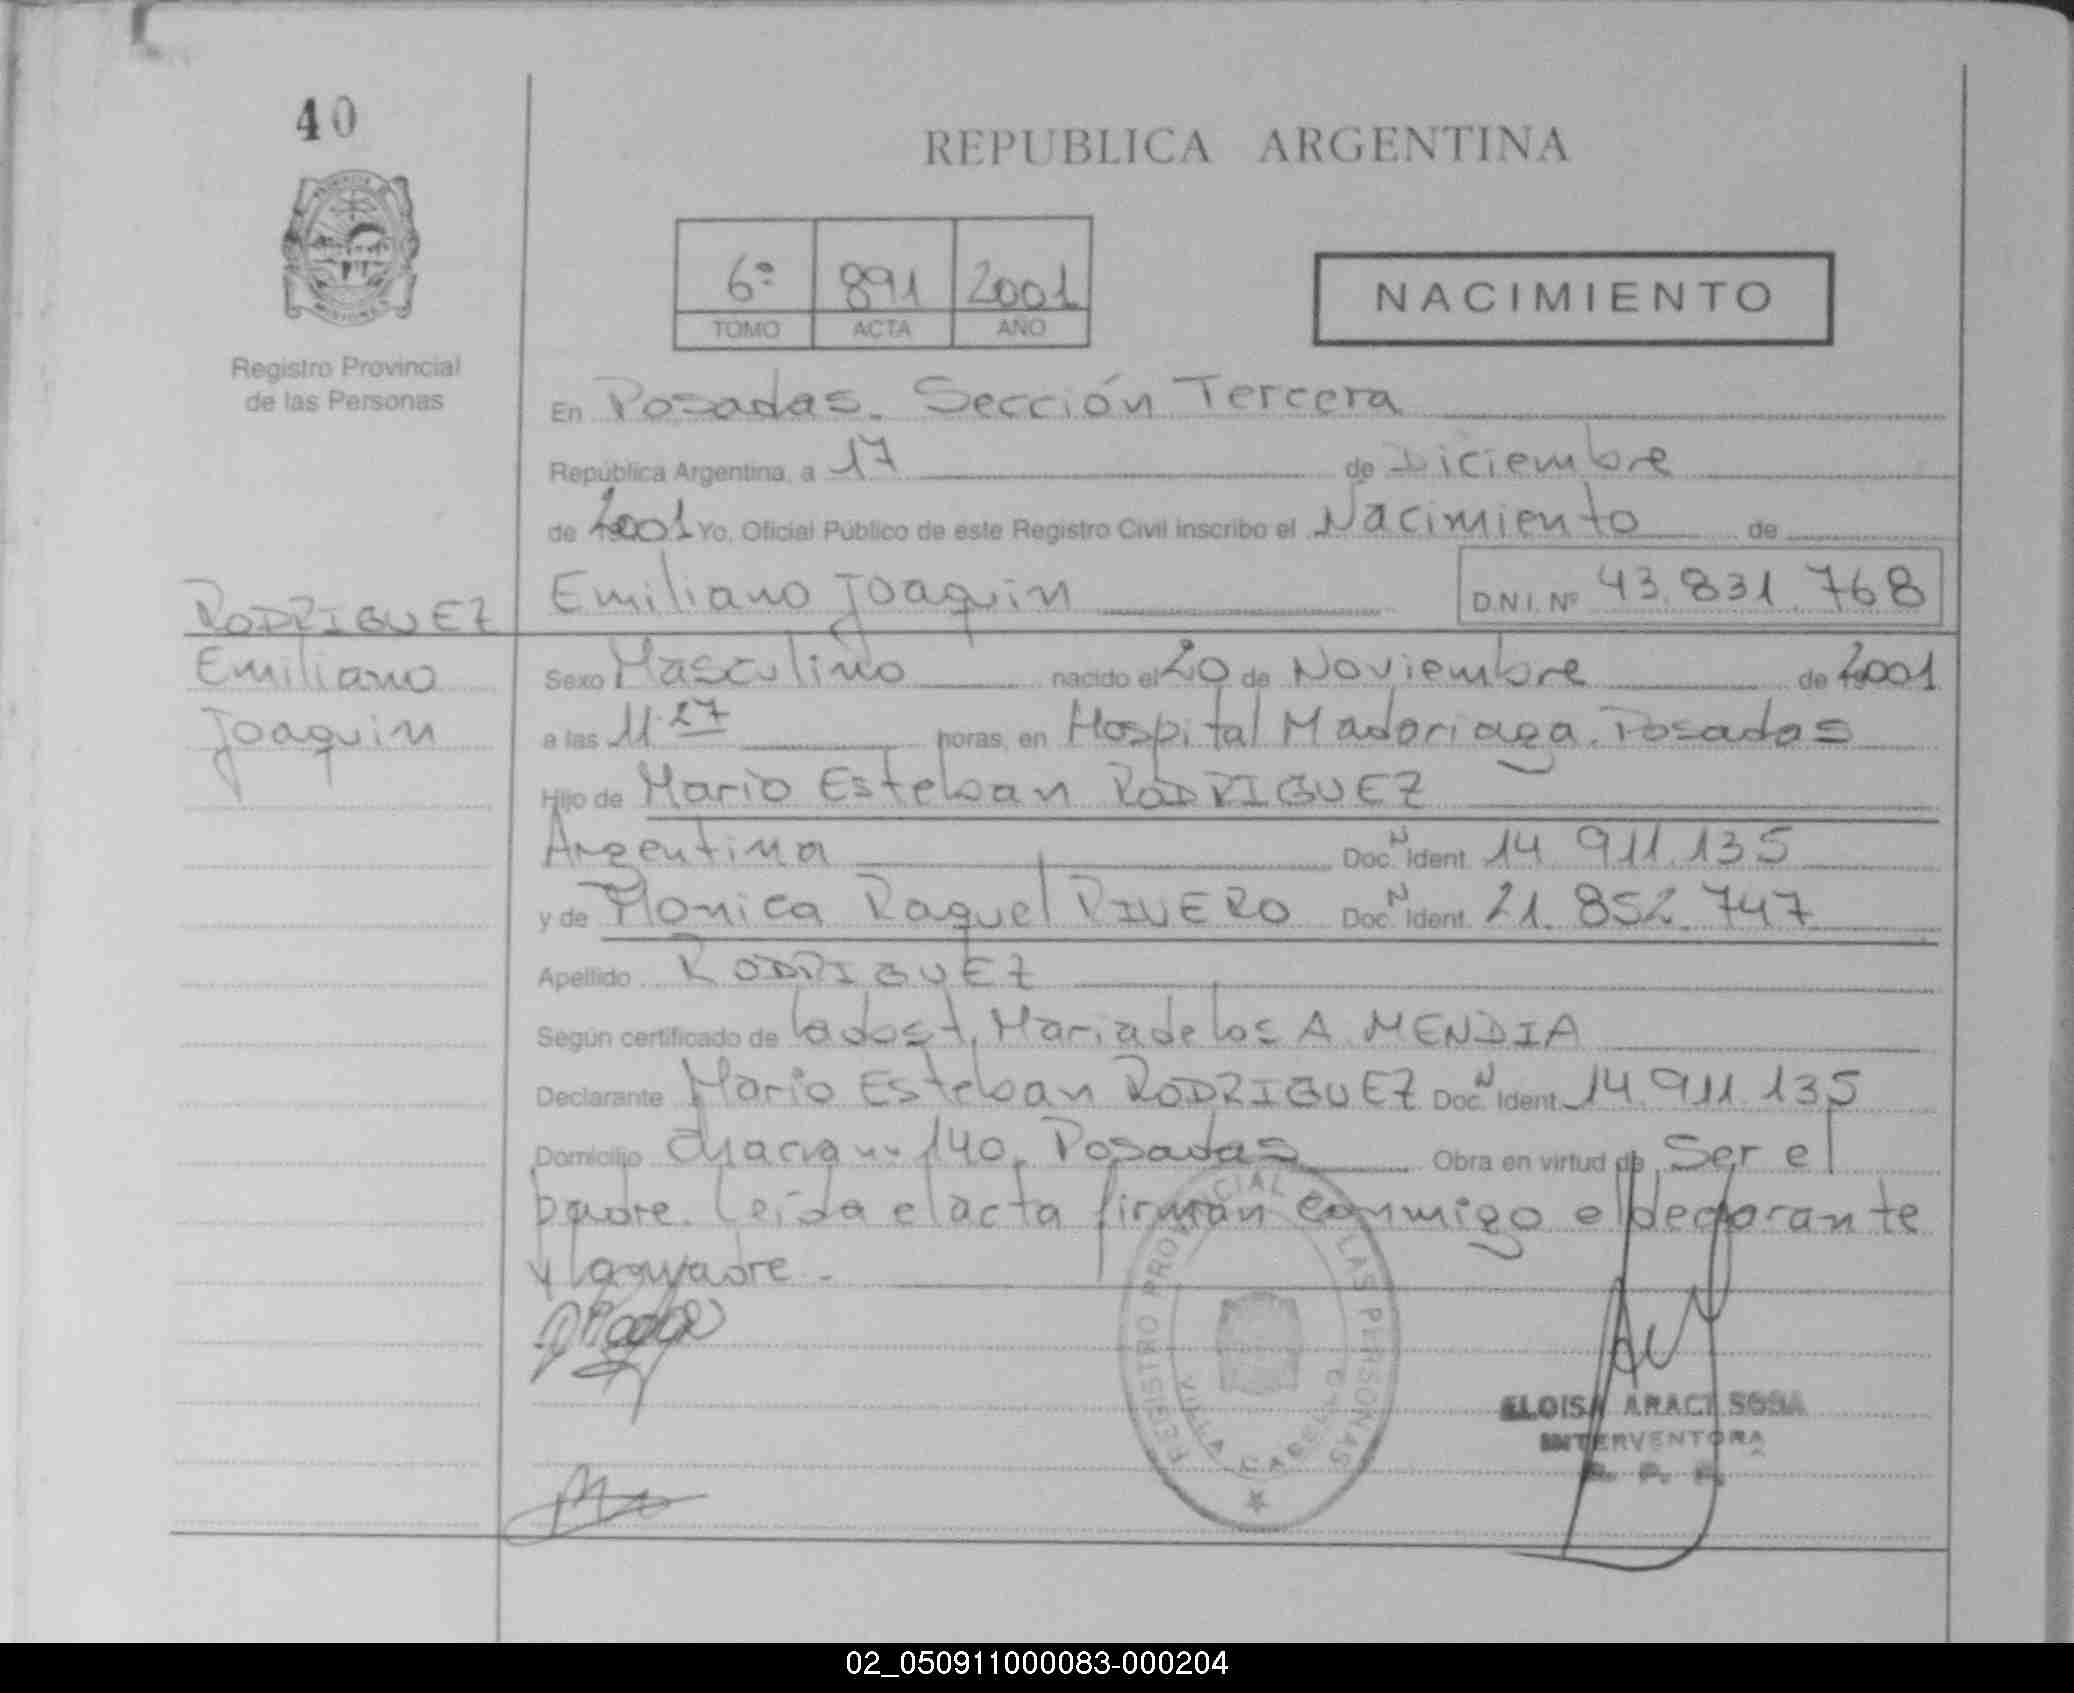 40
REPUBLICA ARGENTINA
6º 891 2001
TOMO ACTA AÑO
NACIMIENTO
Registro Provincial
de las Personas
En Posadas. Sección Tercera
República Argentina, a 17 de Diciembre
de 2001 Yo, Oficial Público de este Registro Civil inscribo el Nacimiento de
Emiliano Joaquin D.N.I. Nº 43.831.768
RODRIGUEZ
Emiliano
Joaquin
Sexo Masculino nacido el 20 de Noviembre de 2001
a las 11.27 horas, en Hospital Madariaga. Posadas
Hijo de Mario Esteban RODRIGUEZ
Argentina Doc. N Ident. 14.911.135
y de Monica Raquel RIVERO Doc. N Ident. 21.852.747
Apellido RODRIGUEZ
Según certificado de la obst. Maria de los A. MENDIA
Declarante Mario Esteban RODRIGUEZ Doc. N Ident. 14.911.135
Domicilio 140, Posadas Obra en virtud de Ser el
padre. Leída el acta firman conmigo el declarante
y la madre.-
REGISTRO PROVINCIAL LAS PERSONAS
VILLA CABELLO
ELOISA ARACI SOSA
INTERVENTORA
R. P. P.
02_050911000083-000204